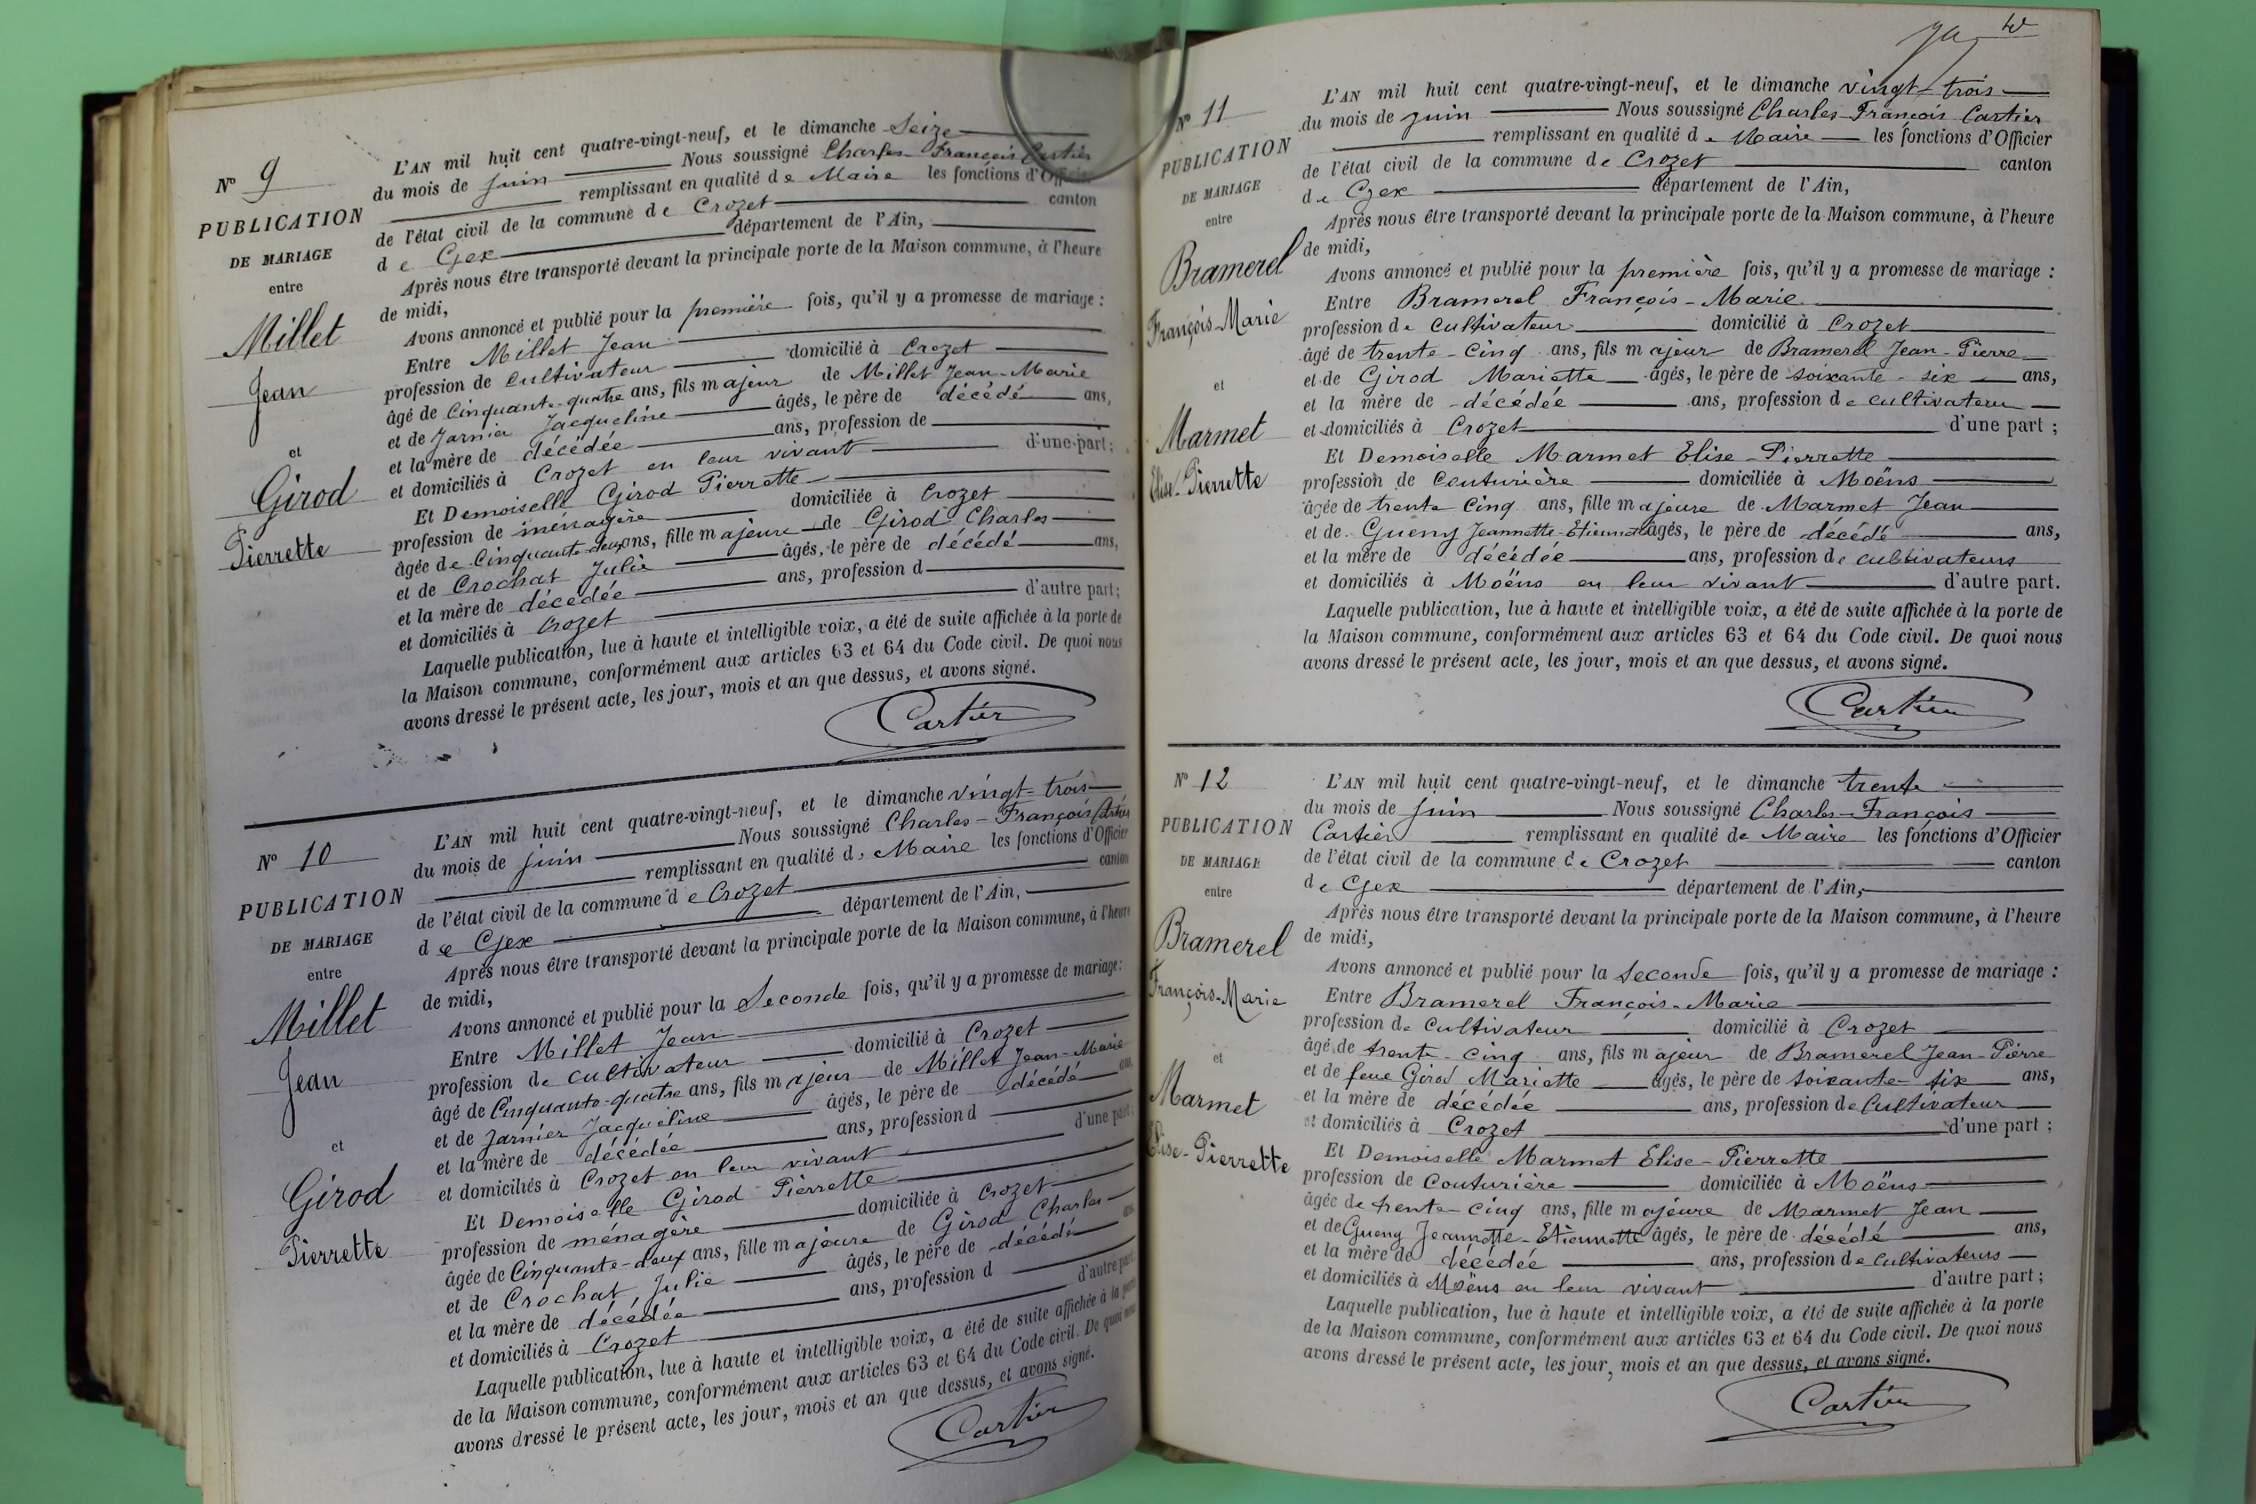 Nº 9
PUBLICATION
DE MARIAGE
entre
Millet
Jean
et
Girod
Pierrette
L'AN mil huit cent quatre-vingt-neuf, et le dimanche Seize
du mois de juin Nous soussigné Charles-François Cartier
remplissant en qualité de Maire les fonctions d'Officier
de l'état civil de la commune de Crozet canton
de Gex département de l'Ain,
Après nous être transporté devant la principale porte de la Maison commune, à l'heure
de midi,
Avons annoncé et publié pour la première fois, qu'il y a promesse de mariage :
Entre Millet Jean
profession de cultivateur domicilié à Crozet
âgé de Cinquante-quatre ans, fils majeur de Millet Jean-Marie
et de Jarnier Jacqueline âgés, le père de décédé ans,
et la mère de décédée ans, profession de
et domiciliés à Crozet en leur vivant d'une part ;
Et Demoiselle Girod Pierrette
profession de ménagère domiciliée à Crozet
âgée de Cinquante-deux ans, fille majeure de Girod Charles
et de Crochat Julie âgés, le père de décédé ans,
et la mère de décédée ans, profession d
et domiciliés à Crozet d'autre part ;
Laquelle publication, lue à haute et intelligible voix, a été de suite affichée à la porte de
la Maison commune, conformément aux articles 63 et 64 du Code civil. De quoi nous
avons dressé le présent acte, les jour, mois et an que dessus, et avons signé.
Cartier
Nº 10
PUBLICATION
DE MARIAGE
entre
Millet
Jean
et
Girod
Pierrette
L'AN mil huit cent quatre-vingt-neuf, et le dimanche vingt-trois
du mois de juin Nous soussigné Charles-François Cartier
remplissant en qualité de Maire les fonctions d'Officier
de l'état civil de la commune de Crozet canton
de Gex département de l'Ain,
Après nous être transporté devant la principale porte de la Maison commune, à l'heure
de midi,
Avons annoncé et publié pour la Seconde fois, qu'il y a promesse de mariage :
Entre Millet Jean
profession de cultivateur domicilié à Crozet
âgé de Cinquante-quatre ans, fils majeur de Millet Jean-Marie
et de Jarnier Jacqueline âgés, le père de décédé ans,
et la mère de décédée ans, profession d
et domiciliés à Crozet en leur vivant d'une part ;
Et Demoiselle Girod Pierrette
profession de ménagère domiciliée à Crozet
âgée de Cinquante-deux ans, fille majeure de Girod Charles
et de Crochat, Julie âgés, le père de décédé ans,
et la mère de décédée ans, profession d
et domiciliés à Crozet d'autre part
Laquelle publication, lue à haute et intelligible voix, a été de suite affichée à la porte
de la Maison commune, conformément aux articles 63 et 64 du Code civil. De quoi nous
avons dressé le présent acte, les jour, mois et an que dessus, et avons signé.
Cartier
Nº 11
PUBLICATION
DE MARIAGE
entre
Bramerel
François-Marie
et
Marmet
Elise-Pierrette
L'AN mil huit cent quatre-vingt-neuf, et le dimanche vingt-trois
du mois de juin Nous soussigné Charles-François Cartier
remplissant en qualité de Maire les fonctions d'Officier
de l'état civil de la commune de Crozet canton
de Gex département de l'Ain,
Après nous être transporté devant la principale porte de la Maison commune, à l'heure
de midi,
Avons annoncé et publié pour la première fois, qu'il y a promesse de mariage :
Entre Bramerel François-Marie
profession de cultivateur domicilié à Crozet
âgé de trente-cinq ans, fils majeur de Bramerel Jean-Pierre
et de Girod Mariette âgés, le père de soixante-six ans,
et la mère de décédée ans, profession de cultivateur
et domiciliés à Crozet d'une part ;
Et Demoiselle Marmet Elise-Pierrette
profession de Couturière domiciliée à Moëns
âgée de trente cinq ans, fille majeure de Marmet Jean
et de Gueny Jeannette-Etiennette âgés, le père de décédé ans,
et la mère de décédée ans, profession de cultivateurs
et domiciliés à Moëns en leur vivant d'autre part.
Laquelle publication, lue à haute et intelligible voix, a été de suite affichée à la porte de
la Maison commune, conformément aux articles 63 et 64 du Code civil. De quoi nous
avons dressé le présent acte, les jour, mois et an que dessus, et avons signé.
Cartier
Nº 12
PUBLICATION
DE MARIAGE
entre
Bramerel
François-Marie
et
Marmet
Elise-Pierrette
L'AN mil huit cent quatre-vingt-neuf, et le dimanche trente
du mois de juin Nous soussigné Charles-François
Cartier remplissant en qualité de Maire les fonctions d'Officier
de l'état civil de la commune de Crozet canton
de Gex département de l'Ain,
Après nous être transporté devant la principale porte de la Maison commune, à l'heure
de midi,
Avons annoncé et publié pour la Seconde fois, qu'il y a promesse de mariage :
Entre Bramerel François-Marie
profession de cultivateur domicilié à Crozet
âgé de trente-cinq ans, fils majeur de Bramerel Jean-Pierre
et de feue Girod Mariette âgés, le père de soixante-six ans,
et la mère de décédée ans, profession de Cultivateur
et domiciliés à Crozet d'une part ;
Et Demoiselle Marmet Elise-Pierrette
profession de Couturière domiciliée à Moëns
âgée de trente-cinq ans, fille majeure de Marmet Jean
et de Gueny Jeannette-Etiennette âgés, le père de décédé ans,
et la mère de décédée ans, profession de cultivateurs
et domiciliés à Moëns en leur vivant d'autre part ;
Laquelle publication, lue à haute et intelligible voix, a été de suite affichée à la porte
de la Maison commune, conformément aux articles 63 et 64 du Code civil. De quoi nous
avons dressé le présent acte, les jour, mois et an que dessus, et avons signé.
Cartier